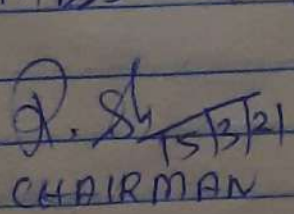 15/3/21
CHAIRMAN